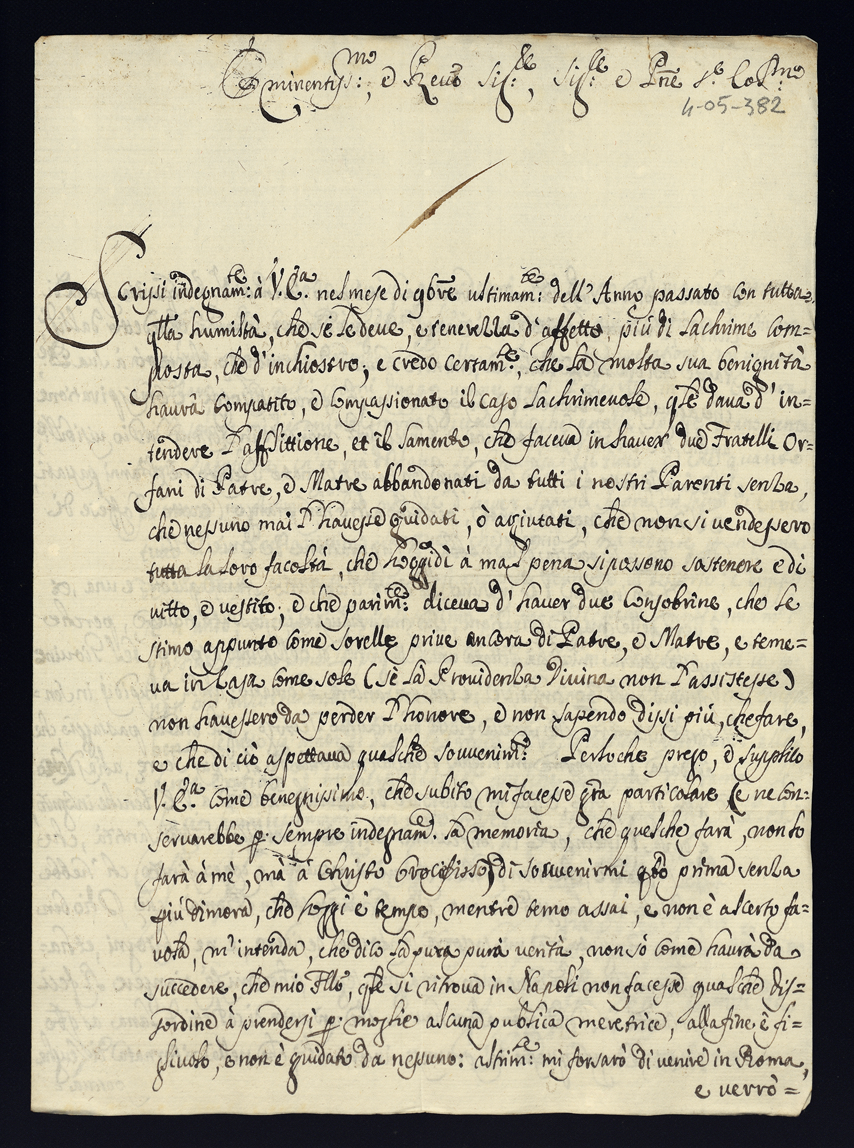 Eminentiss:mo, e Reu͞o Sig:re, Sig:re e Pn͞e Co͞l:mo
4-05-382
Scrissi indegnam:te à V. E.a nel mese di 9bre ultimam:te dell'Anno passato con tutta
q͞lla humiltà, che se le deve, e tenerella d'affetto, più di lachrime com=
posta, che d'inchiostro; e credo certam:te, che la molta sua benignità
haurà compatito, e compassionato il caso lachrimevole, q͞le dava d'in=
tendere l'afflittione, et il lamento, che faceva in haver due Fratelli Or=
fani di Patre, e Matre abbandonati da tutti i nostri Parenti senza,
che nessuno mai l'havesse guidati, ò agiutati, che non si vendessero
tutta la loro facoltà, che hoggidì à mal pena si possono sostenere e di
vitto, e vestito; e che parim:te diceva d'haver due Consobrine, che le
stimo appunto come sorelle prive ancora di Patre, e Matre, e teme=
va in Casa come sole (se la Providenza Divina non l'assistesse)
non havessero da perder l'honore, e non sapendo dissi più, che fare,
e che di ciò aspettava qualche souvenim:to Perloche prego, e supplico
V. E.a come benegnissimo, che subito mi facesse gr͞a particolare (e ne con=
servarebbe p. sempre indegnam. la memoria, che quelche farà, non lo
farà à mè, mà à Christo Crocifisso) di souvenirmi q͞to prima senza
più dimora, che hoggi è tempo, mentre temo assai, e non è al certo fa=
vola, m'intenda, che dico la pura purà verità, non sò come haurà da
succedere, che mio F͞llo, q͞le si ritrova in Napoli non facesse qualche dis=
sordine à prendersi p. moglie alcuna publica meretrice, alla fine è fi=
gliuolo, e non è guidato da nessuno: altrim:te mi forsarò di venire in Roma,
e verrò=